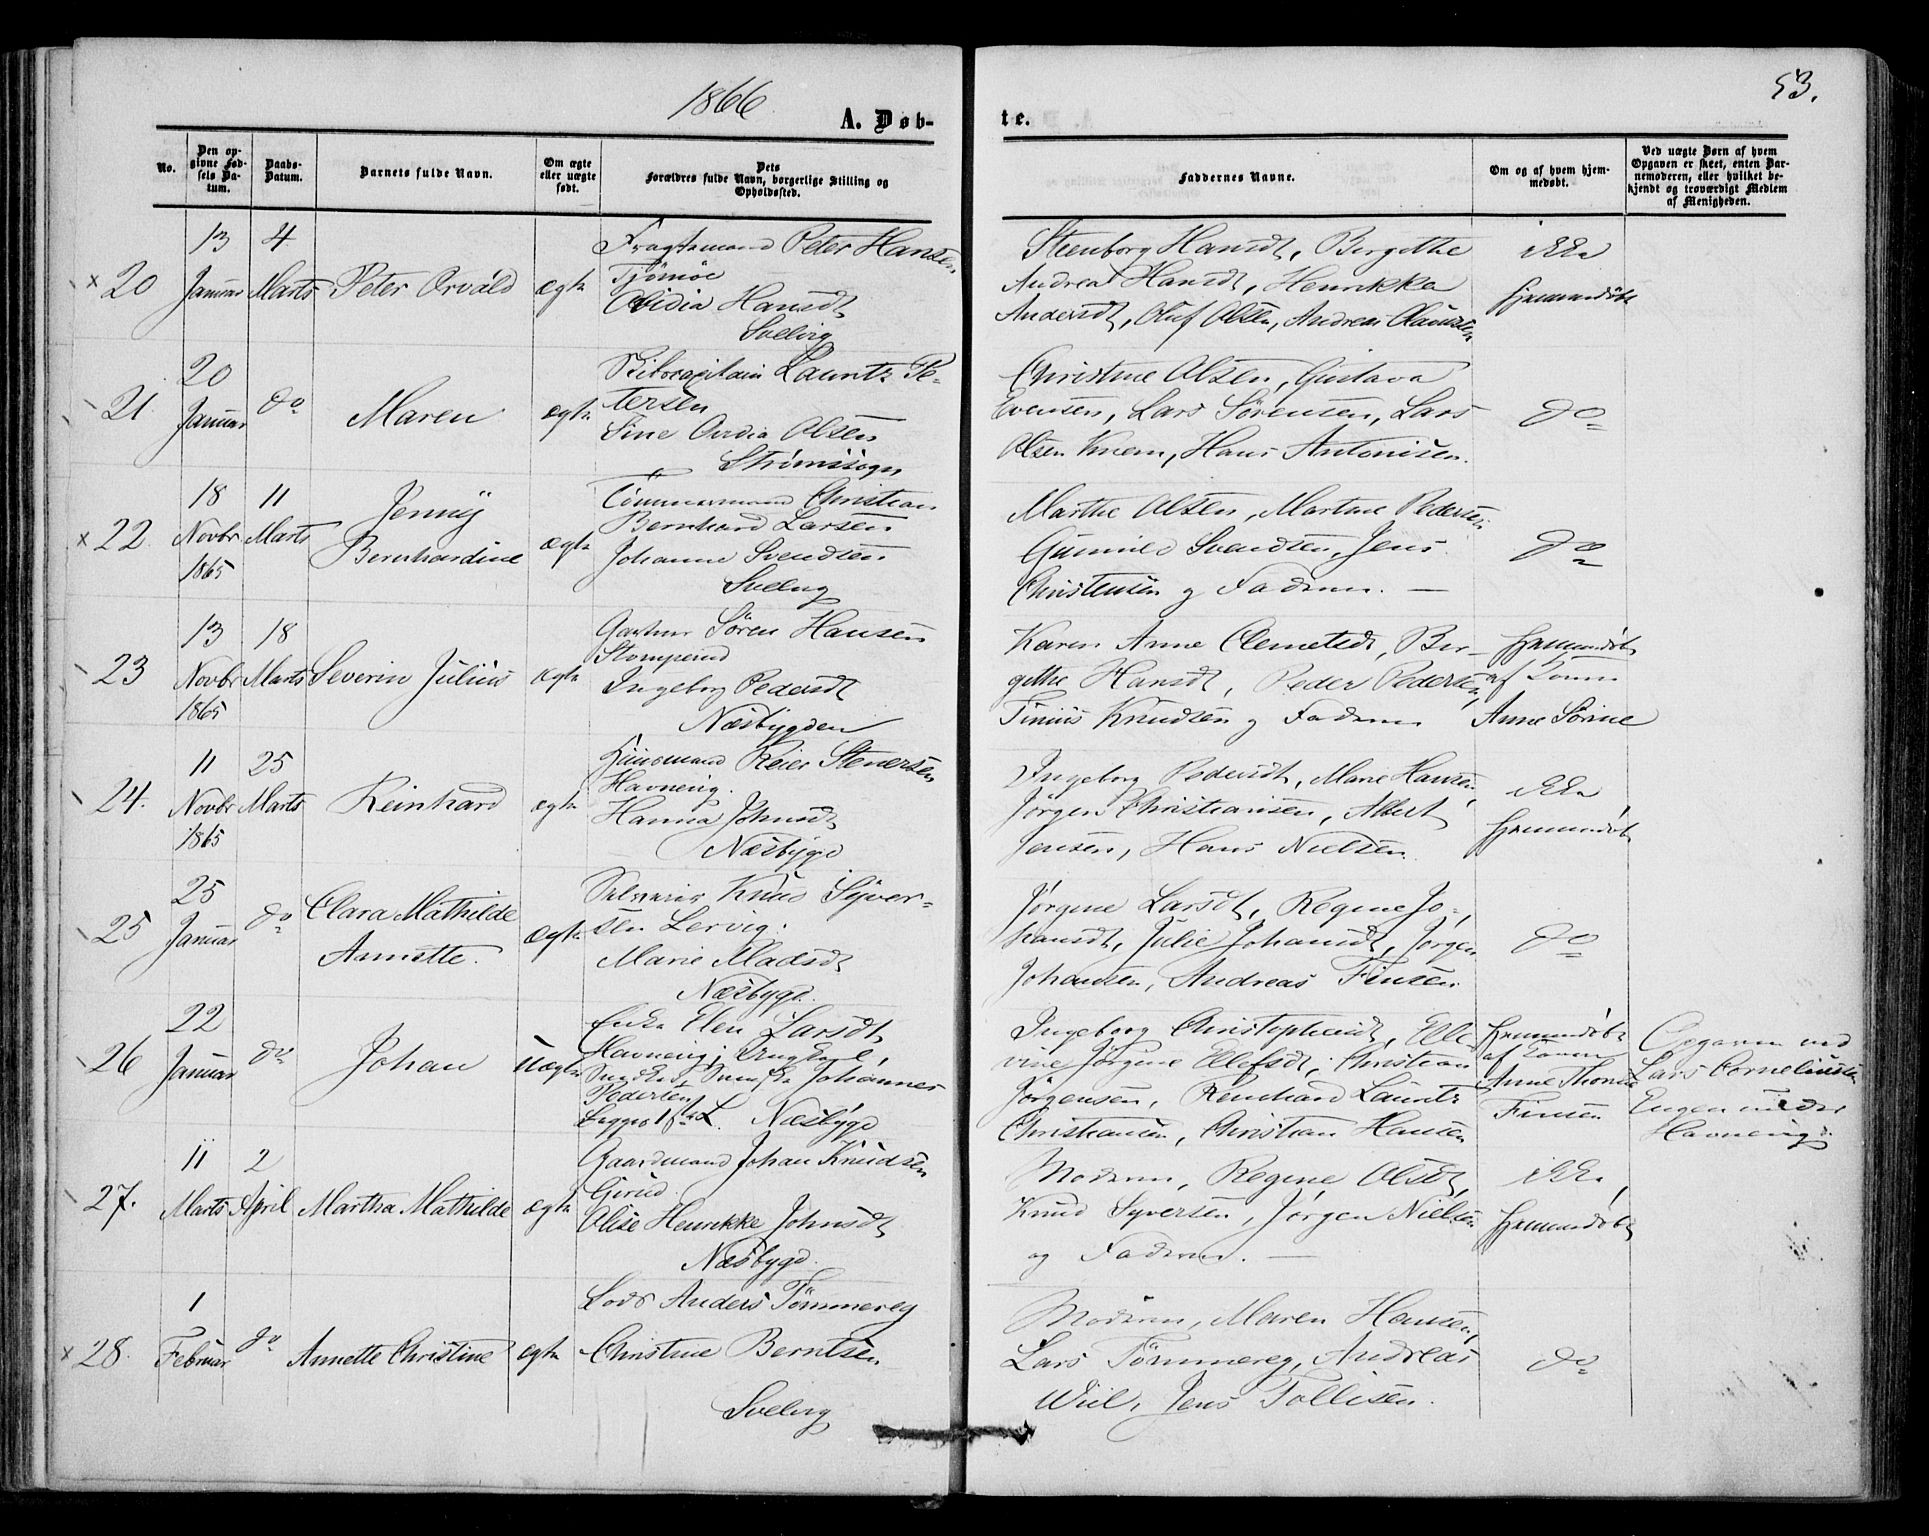 1866.
53.
A. Døb-
te.
No.
Den op-
givne Fød-
sels Da-
tum.
Daabs-
Datum.
Barnets fulde Navn.
Om ægte
eller uægte
født.
Dets
Forældres fulde Navn, borgerlige Stilling og
Opholdssted.
Faddernes Navne.
Om og af hvem hjem-
medøbt.
Ved uægte Børn af hvem
Opgaven er skeet, enten Bar-
nemoderen, eller hvilket be-
kjendt og troværdigt Medlem
af Menigheden.
× 20
13
Januar
4
Marts
Peter Orvald
ægte
Fragtemand Peter Hansen
Tjömöe
Ovidia Hansdt
Svelvig
Steenborg Hansdt, Bergithe
Andrea Hansdt, Henrikke
Andersdt, Oluf Olsen, Andreas Clausen
ikke
hjemmedøbt
21
20
Januar
do
Maren
ægte
Skibscapitain Lauritz Pe-
tersen
Sine Ovidia Olsen
Strömssogn
Christine Olsen, Gustava
Evensen, Lars Sørensen, Lars
Olsen Knem, Hans Antonisen.
do
× 22
18
Novbr
1865
11
Marts
Jenny
Bernhardine
ægte
Tömmermand Christian
Bernhard Larsen
Johanne Svendsen
Svelvig
Marthe Olsen, Martine Pedersen
Gunnild Svendsen, Jens
Christensen og Faderen.
do
23
13
Novbr
1865
18
Marts
Severin Julius
ægte
Søren Hansen
Stomperud
Ingeborg Pedersdt
Næsbygden
Karen Anne Clemetsdt, Ber-
gethe Hansdt, Peder Pedersen,
Tinius Knudsen og Faderen
hjemmedøbt
af
Anne Sørine
24.
11
Novbr
1865
25
Marts
Reinhard
ægte
Huusmand Reier Stenersen
Havnevig.
Hanna Johnsdt
Næsbygd
Ingeborg Pedersdt, Marie Hansen,
Jørgen Christiansen, Albert
Jensen, Hans Nielsen
ikke
hjemmedøbt
25
25
Januar
do
Clara Mathilde
Annette.
ægte
Selveier Knud Syver-
sen Lervig.
Marie Madsdt
Næsbygd.
Jørgine Larsdt, Regine Jo-
hansdt, Julie Johansdt, Jørgen
Johansen, Andreas Finsen.
do
26
22
Januar
do
Johan
uægte
Enke Elen Larsdt
Havnevig; Ungkarl,
Johannes
Pedersen
Begges 1ste L. Næsbygd
Ingeborg Christophersdt, Elle-
vine Jørgine Ellefsdt, Christian
Jørgensen, Reinhard Lauritz
Christiansen, Christian Hansen
hjemmedøbt
af
Anne Thorine
Finsen
Opgaven ved
Lars Corneliussen
Engen nedre
Havnevig.
27.
11
Marts
2
April
Martha Mathilde
ægte
Gaardmand Johan Knudsen
Gjerud.
Olise Henrikke Johnsdt
Næsbygd.
Moderen, Regine Olsdt,
Knud Syversen, Jørgen Nielsen
og Faderen.
ikke
hjemmedøbt
× 28.
1
Februar
do
Annette Christine
ægte
Lods Anders Tömmereg
Christine Berntsen
Svelvig
Moderen, Maren Hansen,
Lars Tömmereg, Andreas
Wiel, Jens Tollisen.
do